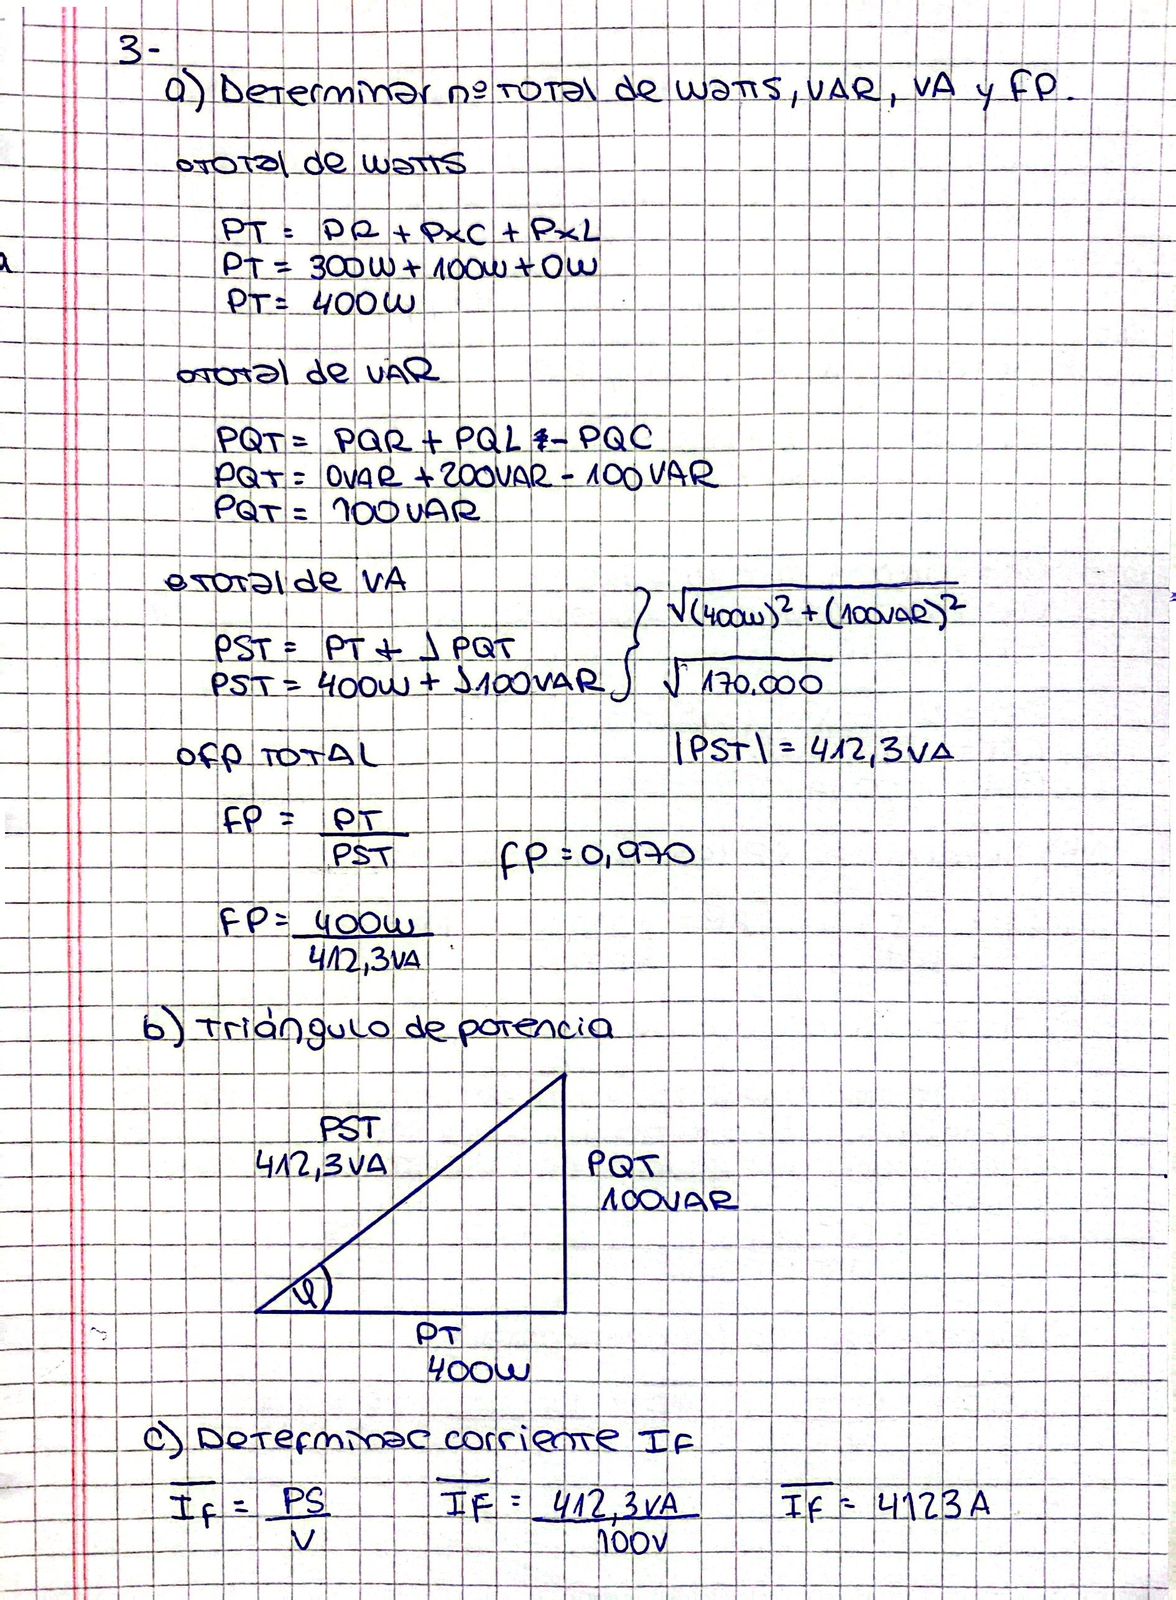 3-
a) Determinar nº Total de watts, VAR, VA y FP.
Total de watts
PT = PR + PXC + PXL
PT = 300W + 100W + 0W
PT = 400W
Total de VAR
PQT = PQR + PQL - PQC
PQT = 0VAR + 200VAR - 100VAR
PQT = 100VAR
Total de VA
PST = PT + J PQT
PST = 400W + J100VAR
√(400W)² + (100VAR)²
√170.000
|PST| = 412,3VA
FP TOTAL
FP = PT
PST
FP = 0,970
FP = 400W
412,3VA
b) Triángulo de potencia
PST
412,3VA
PQT
100VAR
φ
PT
400W
c) Determinar corriente IF
If = PS
V
IF = 412,3VA
100V
IF = 4123A